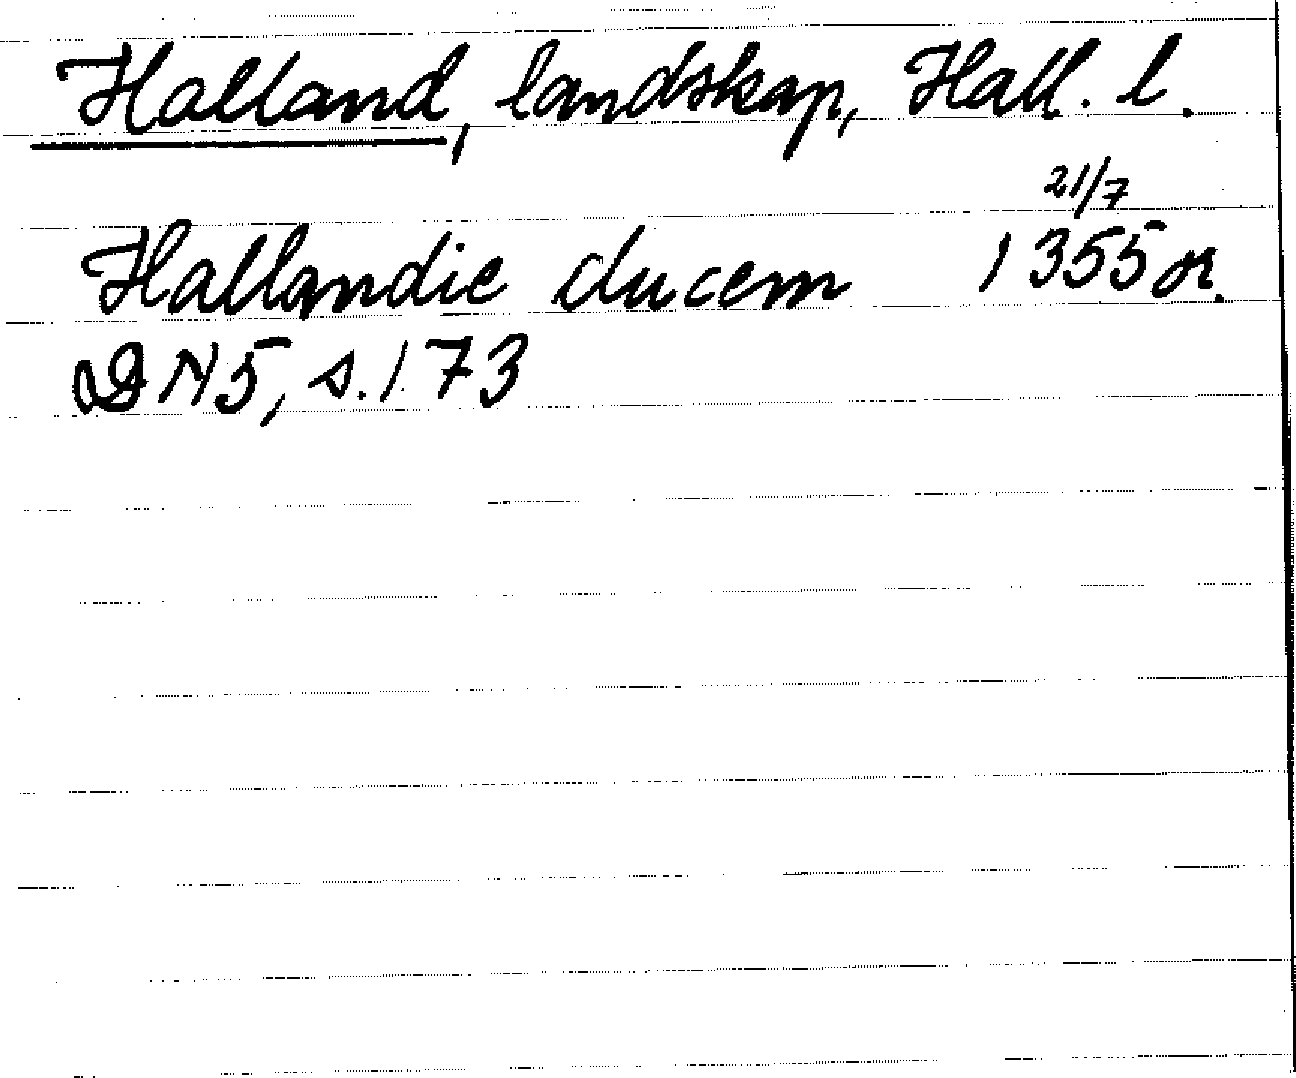 Halland, landskap, Hall. l.
21/7
Hallandie ducem 1355 or.
DN5, s. 173